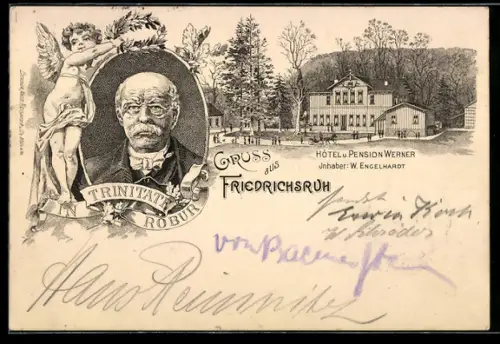 IN TRINITATE ROBUR
GRUSS aus FRIEDRICHSRUH
HÔTEL u. PENSION WERNER
Jnhaber: W. ENGELHARDT
sendet
Erwin Koch
W Schröder
Hans Reimnitz